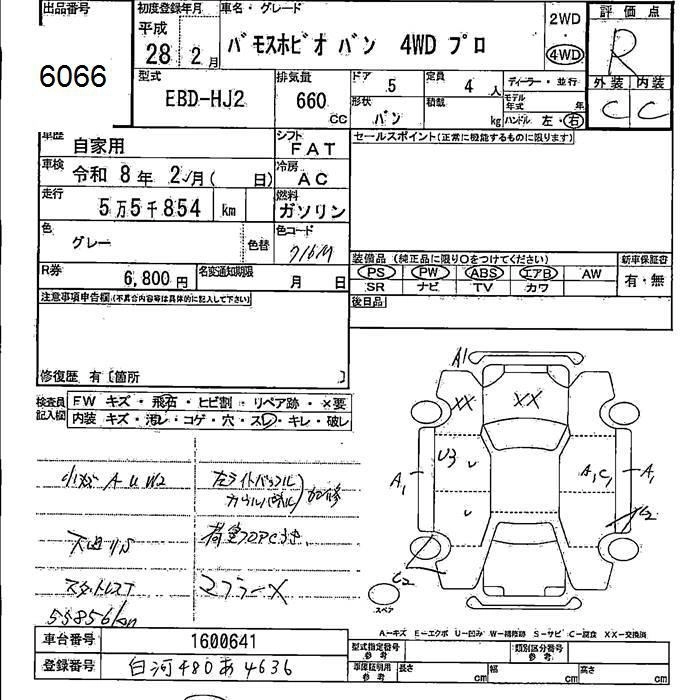 出品番号
6066
初度登録年月
平成
28年 2月
車名・グレード
バモスホビオ バン 4WD プロ
2WD
・
4WD
評価点
R
外装 内装
C C
型式
EBD-HJ2
排気量
660 CC
ドア 5
定員 4 人
ディーラー・並行
形状 バン
積載 kg
モデル年式 年
ハンドル 左・右
車歴 自家用
シフト FAT
セールスポイント(正常に機能するものに限ります)
車検 令和 8年 2月( 日)
冷房 AC
走行 5万5千854 km
燃料 ガソリン
色 グレー
色替
色コード 716M
装備品 (純正品に限り○をつけてください)
新車保証書
PS PW ABS エアB AW
有・無
SR ナビ TV カワ
R券 6,800円
名変通知期限 月 日
後日品
注意事項申告欄(不具合内容等は具体的に記入して下さい)
修復歴 有〔箇所 〕
検査員記入欄
FW キズ・飛石・ヒビ割・リペア跡・×要
内装 キズ・汚レ・コゲ・穴・スレ・キレ・破レ
A1
XX XX
U3
A1 A1C1 A1
C2
C2
スペア
小キズ A U W2
左ライト
加修
スタットレス
マフラーX
55856km
A－キズ E－エクボ U－凹み W－補修跡 S－サビ C－腐食 XX－交換済
車台番号 1600641
登録番号 白河480あ4636
型式指定番号 参考
類別区分番号 参考
車庫証明用 参考
長さ cm 幅 cm 高さ cm